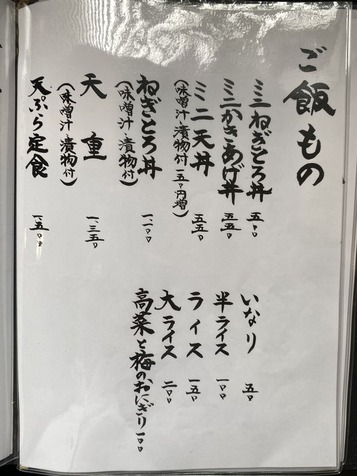 ご飯もの
ミニねぎとろ丼 五〇〇
ミニかきあげ丼 五五〇
ミニ天丼 五五〇
(味噌汁 漬物付 一五〇円増)
ねぎとろ丼 一一〇〇
(味噌汁 漬物付)
天重 一三五〇
(味噌汁 漬物付)
天ぷら定食 一五〇〇
いなり 五〇
半ライス 一〇〇
ライス 一五〇
大ライス 二〇〇
高菜と梅のおにぎり 一〇〇